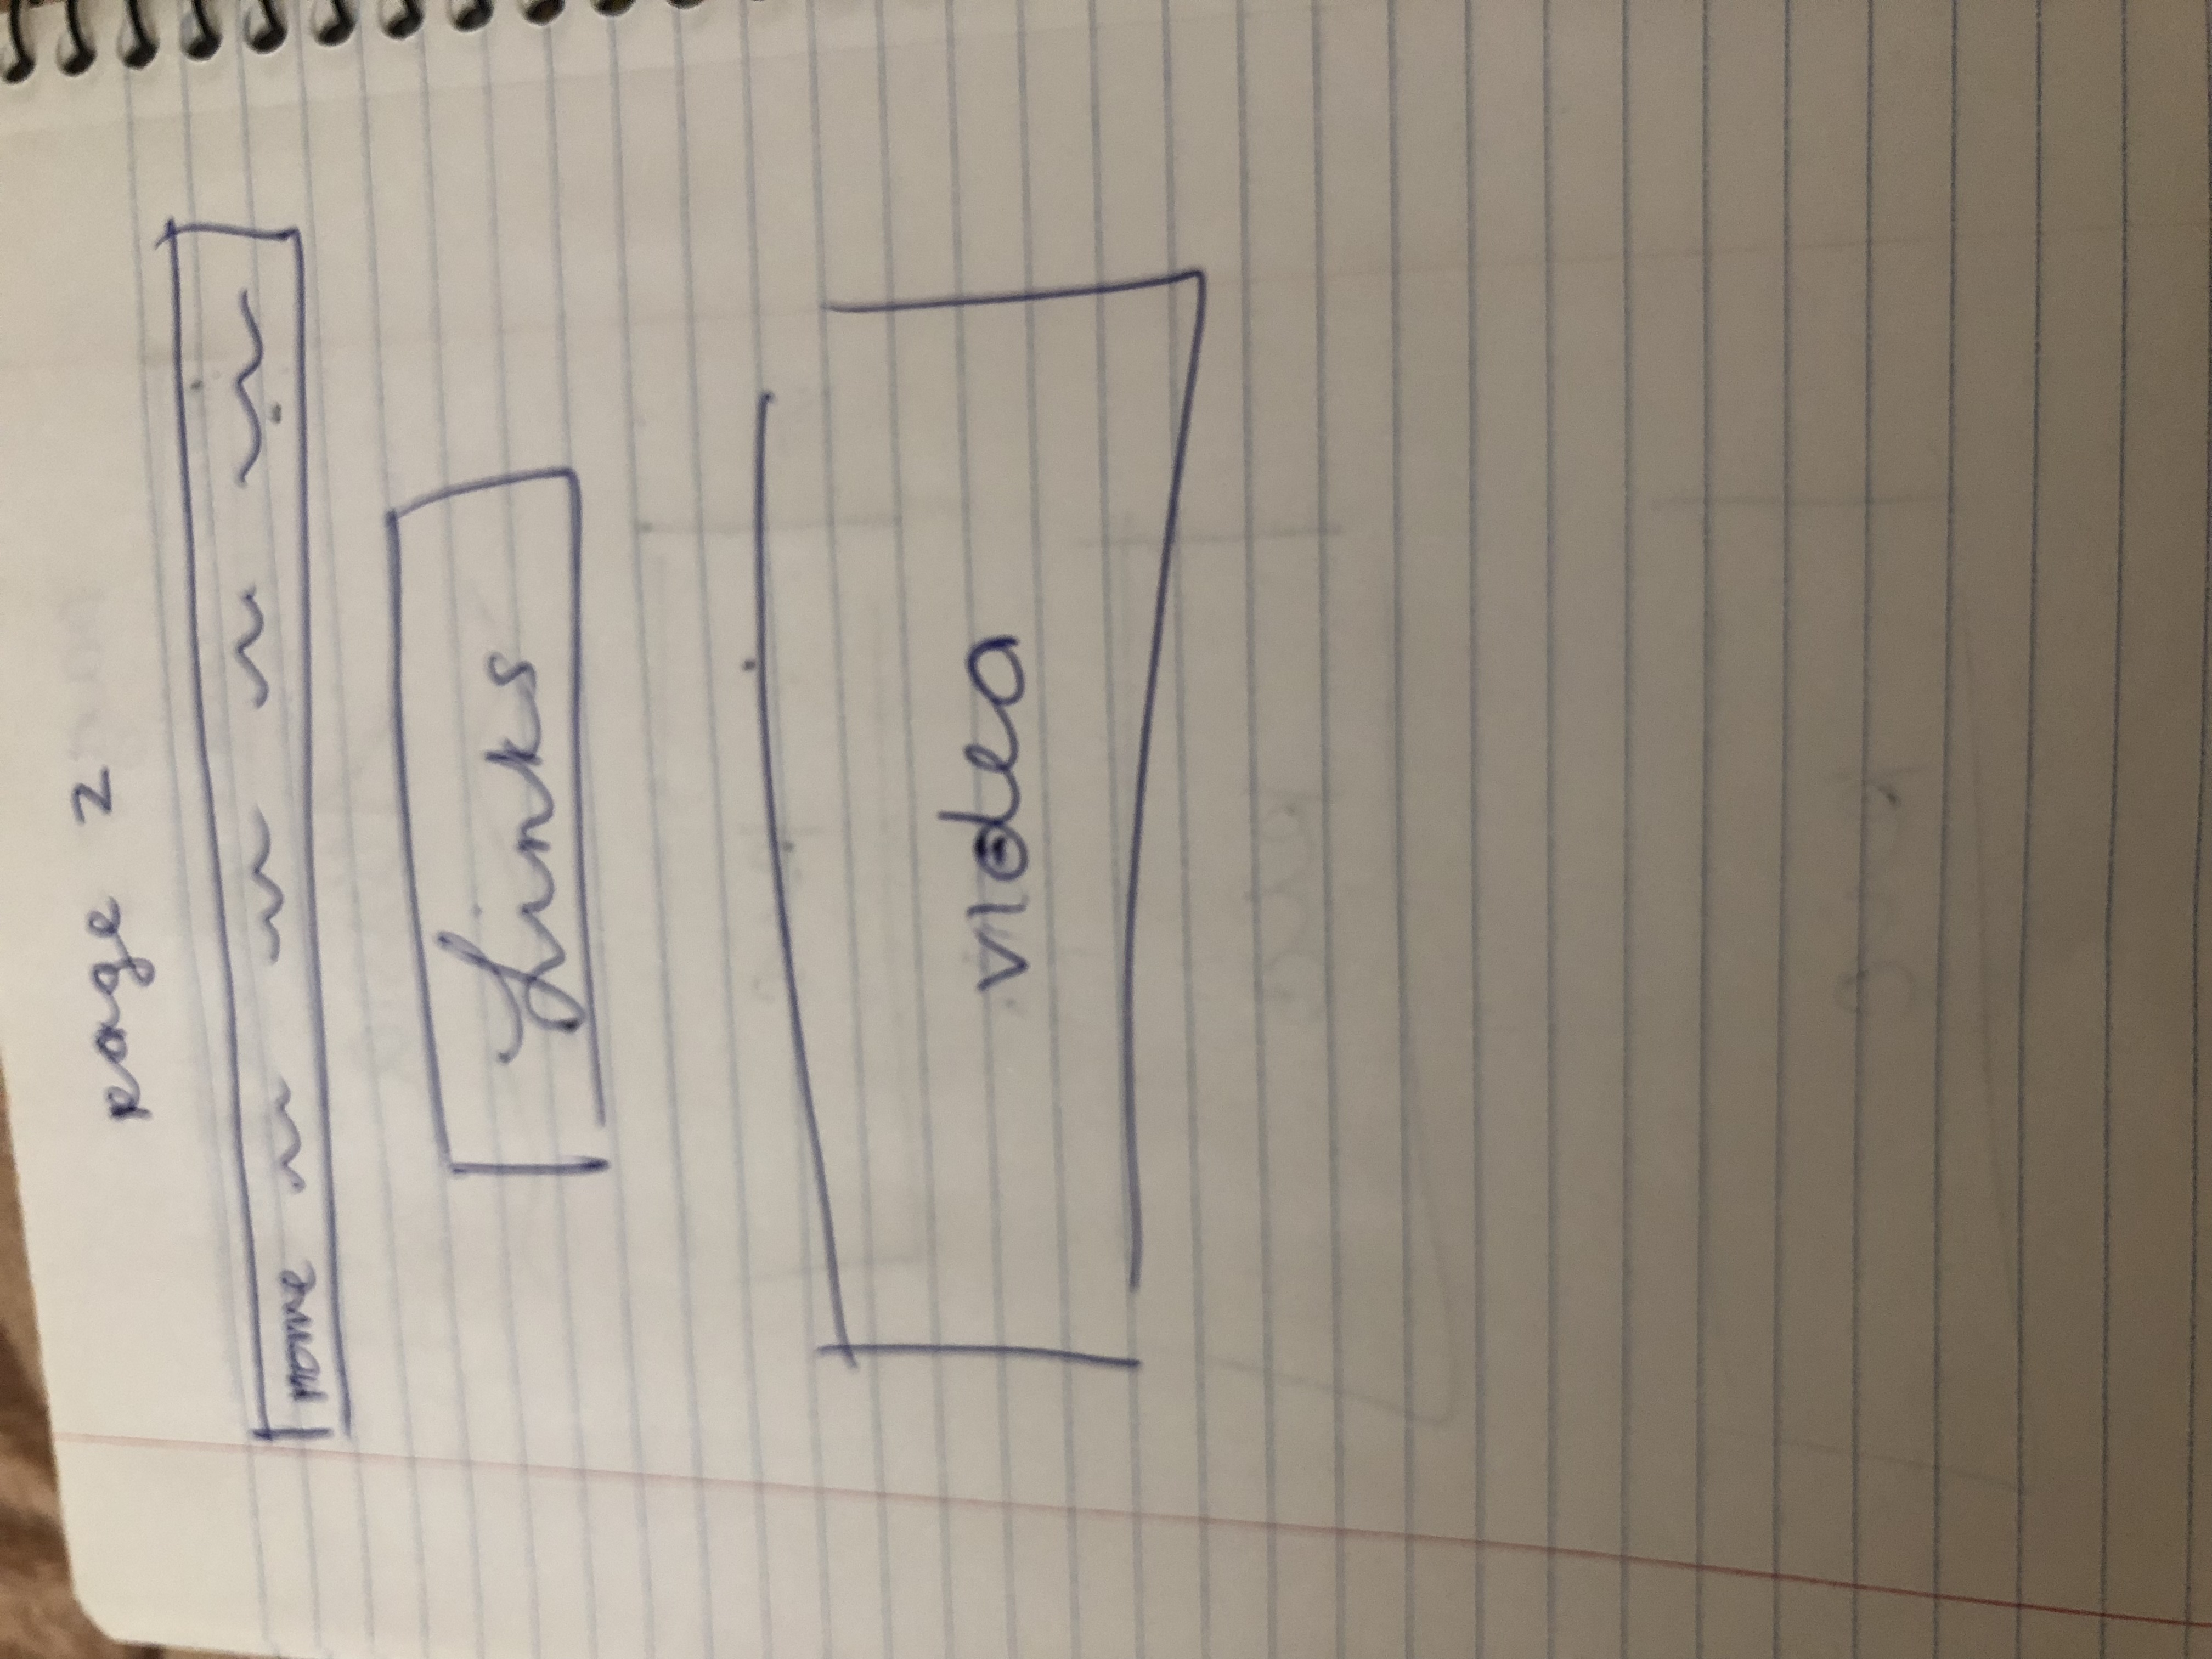 Page 2
Home
Links
video